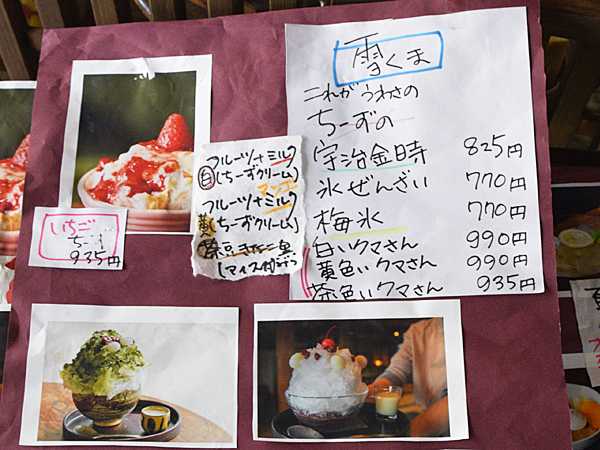 雪くま
これがうわさの
ちーずの
宇治金時 825円
氷ぜんざい 770円
梅氷 770円
白いクマさん 990円
黄色いクマさん 990円
茶色いクマさん 935円
フルーツ+ミルク
白(ちーずクリーム)
マンゴー
フルーツ+ミルク
黄(ちーずクリーム)
いちご
935円